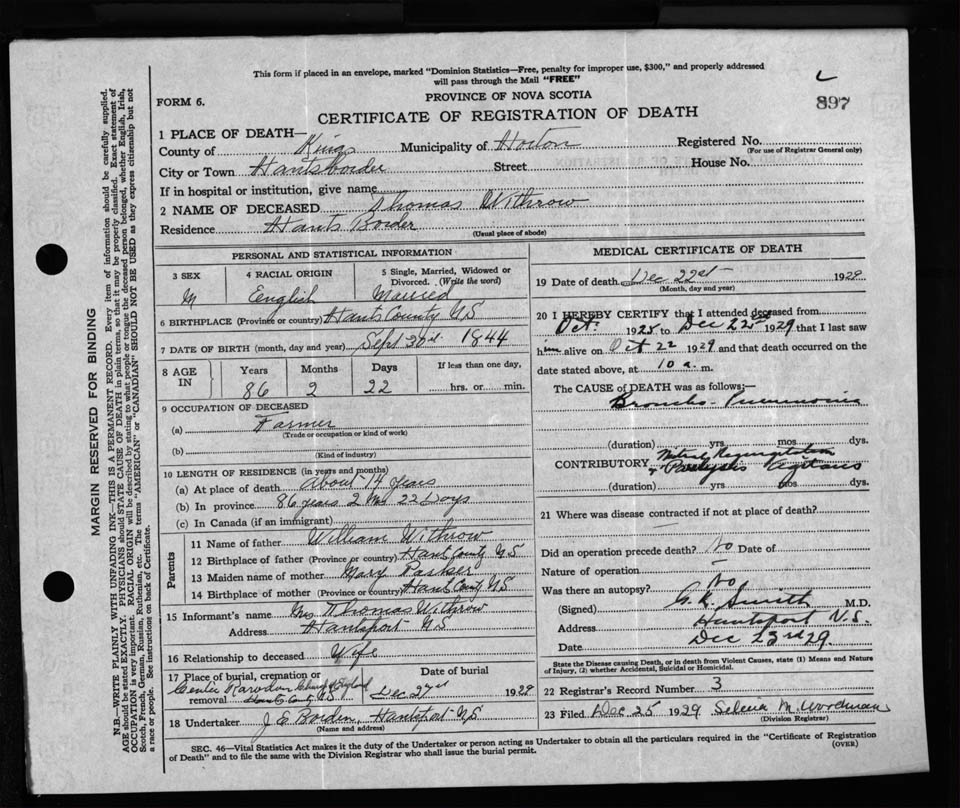 This form if placed in an envelope, marked "Dominion Statistics—Free, penalty for improper use, $300," and properly addressed
will pass through the Mail "FREE"
L
897
FORM 6.
PROVINCE OF NOVA SCOTIA
CERTIFICATE OF REGISTRATION OF DEATH
1 PLACE OF DEATH—
County of Kings Municipality of Horton Registered No.
(For use of Registrar General only)
City or Town Hantsborder Street House No.
If in hospital or institution, give name
2 NAME OF DECEASED Thomas Withrow
Residence Hants Border
(Usual place of abode)
PERSONAL AND STATISTICAL INFORMATION
3 SEX 4 RACIAL ORIGIN 5 Single, Married, Widowed or Divorced. (Write the word)
M English Married
6 BIRTHPLACE (Province or country) Hants County N.S
7 DATE OF BIRTH (month, day and year) Sept 1844
8 AGE IN Years Months Days If less than one day,
86 2 22 hrs. or min.
9 OCCUPATION OF DECEASED
(a) Farmer
(Trade or occupation or kind of work)
(b)
(Kind of industry)
10 LENGTH OF RESIDENCE (in years and months)
(a) At place of death About 14 years
(b) In province 86 years 2 Mo 22 Days
(c) In Canada (if an immigrant)
Parents
11 Name of father William Withrow
12 Birthplace of father (Province or country) Hants County N S
13 Maiden name of mother Mary Parker
14 Birthplace of mother (Province or country) Hants County N S
15 Informant's name Mrs Thomas Withrow
Address Hantsport N S
16 Relationship to deceased Wife
17 Place of burial, cremation or removal Date of burial
Center Rawdon Church of England
Hants County NS Dec 1929
18 Undertaker J E Borden, Hantsport N S
(Name and address)
MEDICAL CERTIFICATE OF DEATH
19 Date of death Dec 22st 1929
(Month, day and year)
20 I HEREBY CERTIFY that I attended deceased from
Oct. 1925 to Dec 1929 that I last saw
him alive on Oct 22 1929 and that death occurred on the
date stated above, at 10 a. m.
The CAUSE of DEATH was as follows:—
Broncho-Pneumonia
(duration) yrs mos dys.
CONTRIBUTORY Mitral Regurgitation
& Paralysis Agitans
(duration) yrs mos dys.
21 Where was disease contracted if not at place of death?
Did an operation precede death? No Date of
Nature of operation
Was there an autopsy? No
(Signed) G. K. Smith M.D.
Address Hantsport N.S.
Date Dec 23rd 29
State the Disease causing Death, or in death from Violent Causes, state (1) Means and Nature
of Injury, (2) whether Accidental, Suicidal or Homicidal.
22 Registrar's Record Number 3
23 Filed Dec 25 1929 Selena M. Woodman
(Division Registrar)
SEC. 46—Vital Statistics Act makes it the duty of the Undertaker or person acting as Undertaker to obtain all the particulars required in the "Certificate of Registration
of Death" and to file the same with the Division Registrar who shall issue the burial permit. (OVER)
MARGIN RESERVED FOR BINDING
N.B.—WRITE PLAINLY WITH UNFADING INK—THIS IS A PERMANENT RECORD. Every item of information should be carefully supplied.
AGE should be stated EXACTLY. PHYSICIANS should STATE CAUSE OF DEATH in plain terms, so that it may be properly classified. Exact statement of
OCCUPATION is very important. RACIAL ORIGIN will be described by stating to what people or tongue the deceased person belonged, whether English, Irish,
Scotch, French, German, Russian, Ruthenian, etc. The terms "AMERICAN" or "CANADIAN" SHOULD NOT BE USED as they express citizenship but not
a race or people. See instructions on back of Certificate.